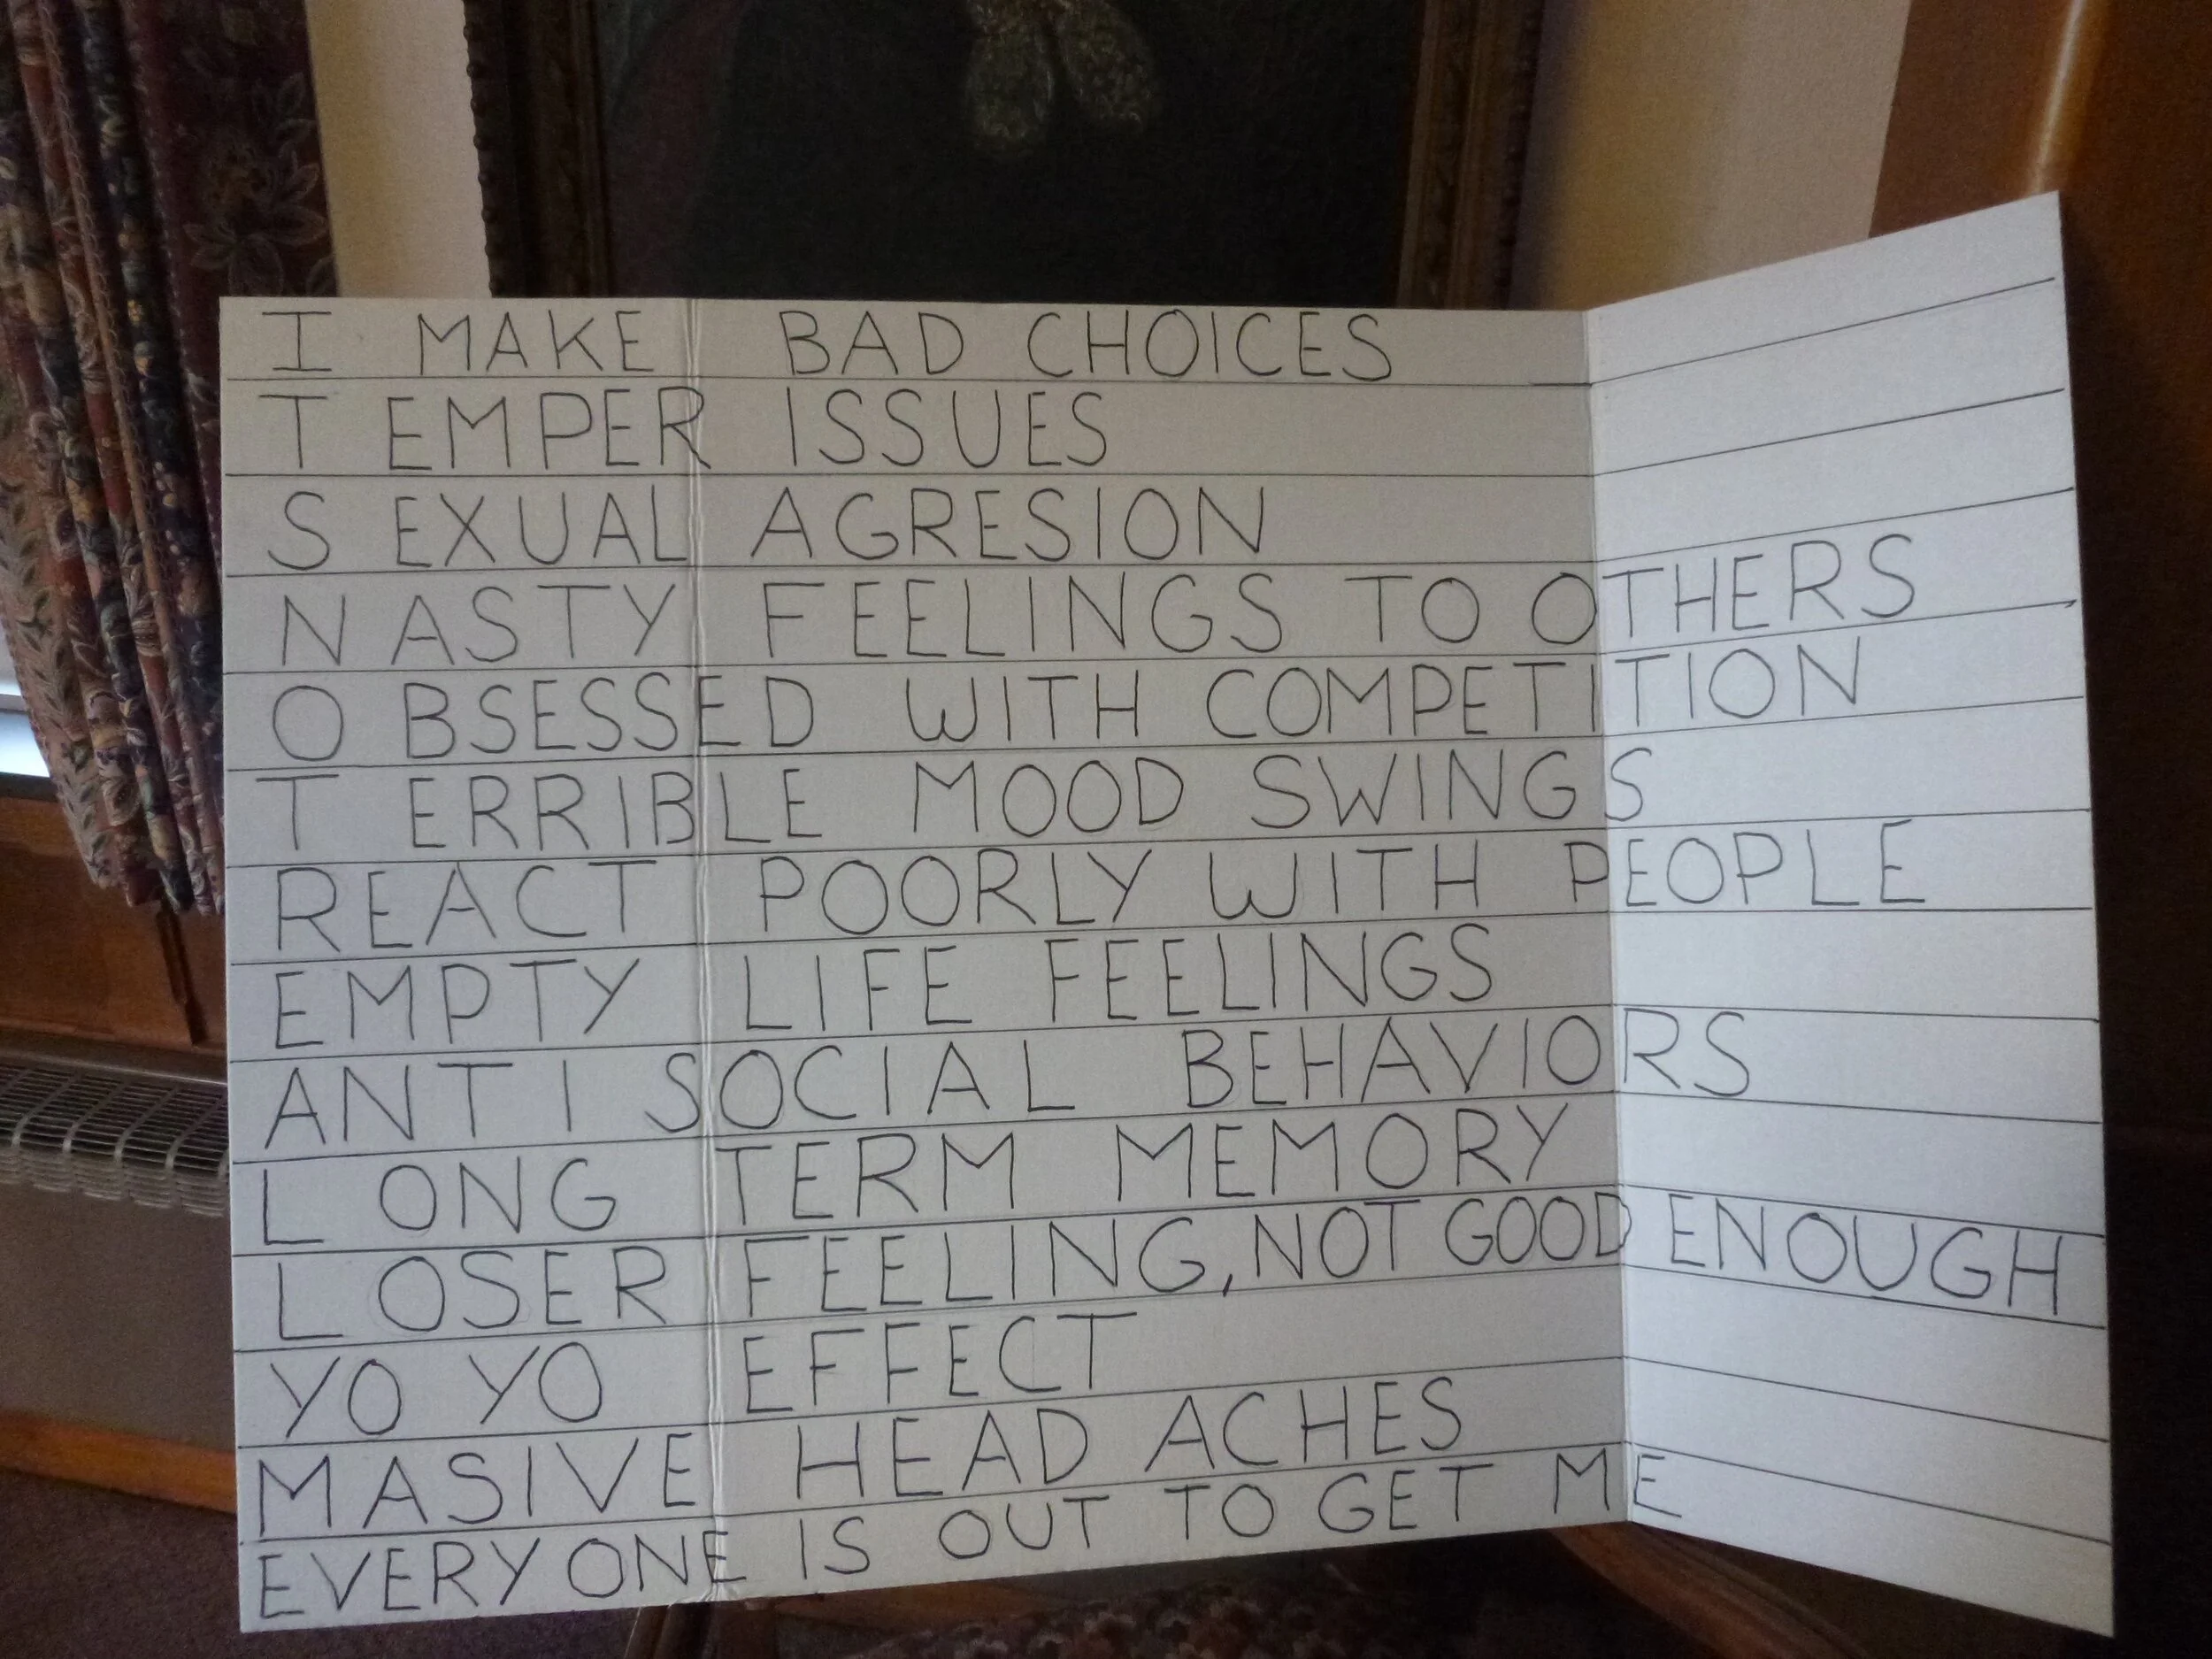 I MAKE BAD CHOICES
TEMPER ISSUES
SEXUAL AGRESION
NASTY FEELINGS TO OTHERS
OBSESSED WITH COMPETITION
TERRIBLE MOOD SWINGS
REACT POORLY WITH PEOPLE
EMPTY LIFE FEELINGS
ANTI SOCIAL BEHAVIORS
LONG TERM MEMORY
LOSER FEELING, NOT GOOD ENOUGH
YO YO EFFECT
MASIVE HEAD ACHES
EVERYONE IS OUT TO GET ME